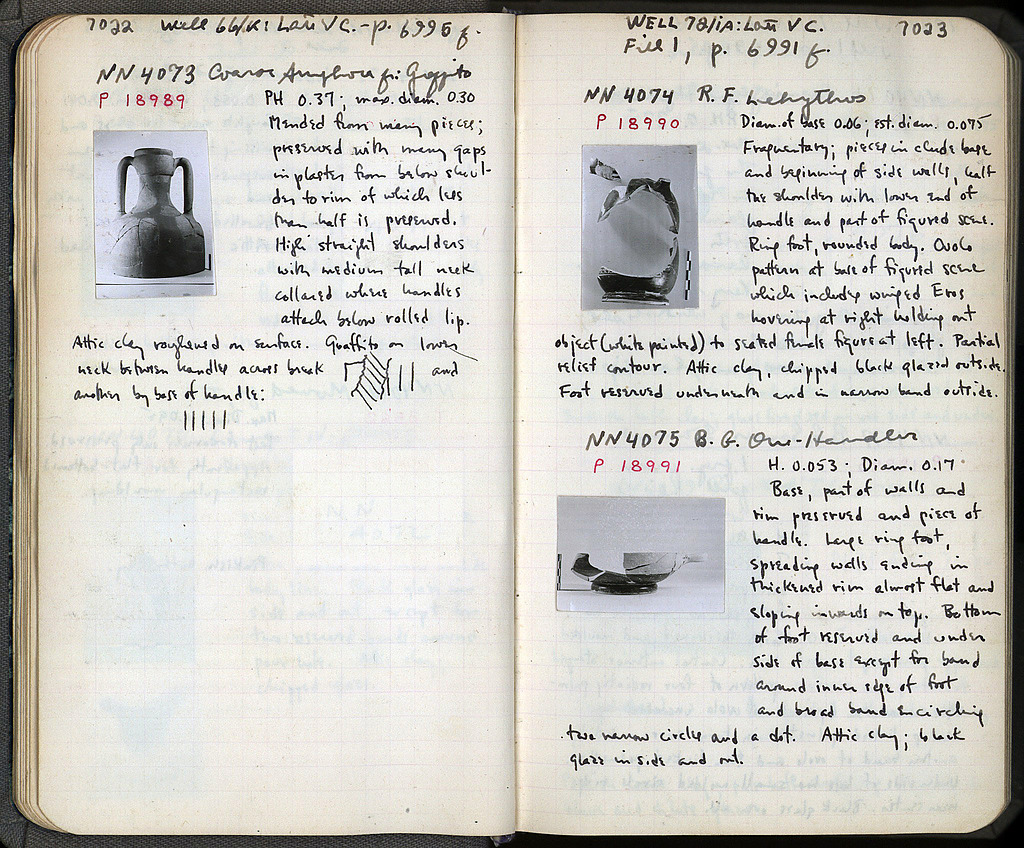 7022 Well 66/K: Late V C. - p. 6995 f.
NN 4073 Coarse Amphora fr: Graffito
P 18989 PH 0.37; max. diam. 0.30
Mended from many pieces;
preserved with many gaps
in plaster from below shoul-
der to rim of which less
than half is preserved.
High straight shoulders
with medium tall neck
collared where handles
attach below rolled lip.
Attic clay roughened on surface. Graffito on lower
neck between handles across break and
another by base of handle:
WELL 72/1A: Late V C. 7023
Fill 1, p. 6991 f.
NN 4074 R. F. Lekythos
P 18990 Diam. of base 0.06; est. diam. 0.075
Fragmentary; pieces include base
and beginning of side walls, half
the shoulder with lower end of
handle and part of figured scene.
Ring foot, rounded body. Ovolo
pattern at base of figured scene
which includes winged Eros
hovering at right holding out
object (white painted) to seated female figure at left. Partial
relief contour. Attic clay, chipped black glazed outside.
Foot reserved underneath and in narrow band outside.
NN 4075 B. G. One-Handler
P 18991 H. 0.053; Diam. 0.17
Base, part of walls and
rim preserved and piece of
handle. Large ring foot,
spreading walls ending in
thickened rim almost flat and
sloping inwards on top. Bottom
of foot reserved and under
side of base except for band
around inner edge of foot
and broad band encircling
two narrow circles and a dot. Attic clay; black
glaze inside and out.